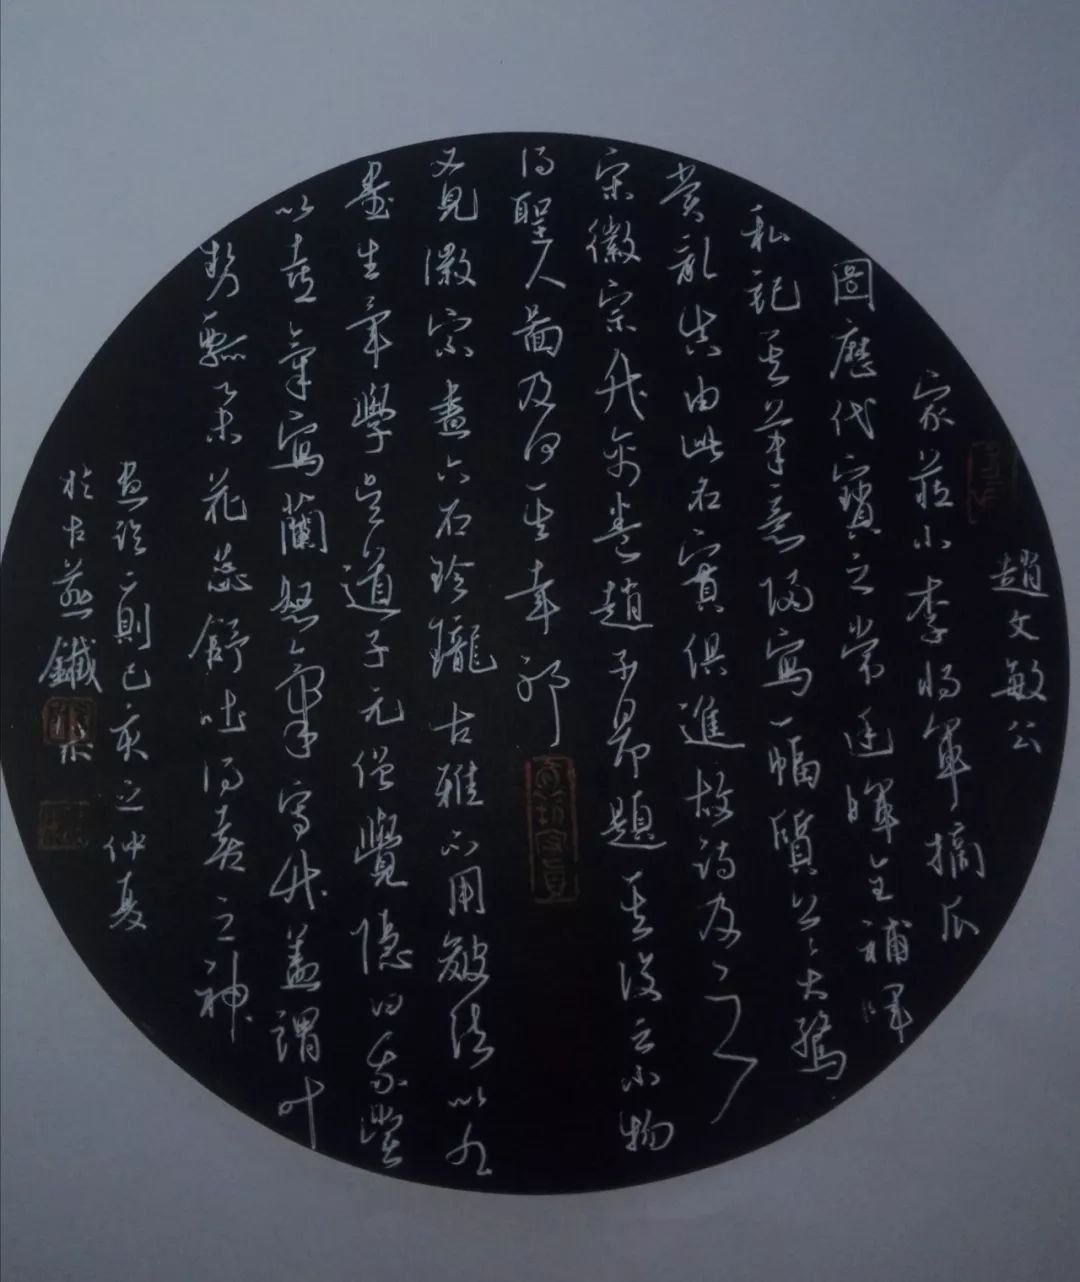 趙文敏公
家藏小李將軍摘瓜
圖歷代寶之嘗迋暉全補暉
私記其筆意歸寫一幅質公公大驚
賞亂真由此名實俱進故詩及之
宋徽宗升卷趙子昂題其後云小物
得聖人圖及何其幸耶
又見徽宗畫六石玲瓏古雅不用皴法以
畫生筆學吳道子元僧覺隱曰我嘗
以喜氣寫蘭怒氣寫竹蓋謂叶
勢飄舉花蕊舒吐得喜之神
畫論一則己亥之仲夏
於古燕鐵